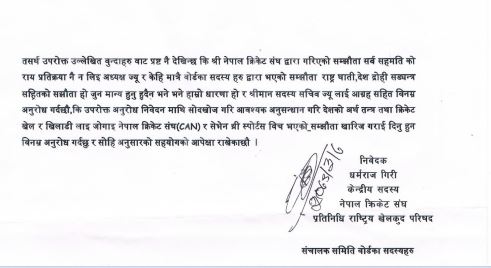 तसर्थ उपरोक्त उल्लेखित वुन्दाहरु वाट प्रष्ट नै देखिन्छ कि श्री नेपाल क्रिकेट संघ द्वारा गरिएको सम्झौता सर्व सहमति को
राय प्रतिक्रया नै न लिइ अध्यक्ष ज्यू र केहि मात्रै वोर्डका सदस्य हरु द्वारा भएको सम्झौता राष्ट्र घाती,देश द्रोही सड्यन्त्र
सहितको सझौता हो जुन मान्य हुनु हुदैन भने भने हाम्रो धारणा हो र श्रीमान सदस्य सचिव ज्यू लाई आग्रह सहित विनम्र
अनुरोध गर्दछौ,कि उपरोक्त अनुरोध निवेदन माथि सोदखोज गरि आवश्यक अनुसन्धान गरि देशको अर्थ तन्त्र तथा क्रिकेट
खेल र खिलाडी लाइ जोगाइ नेपाल क्रिकेट संघ(CAN) र सेभेन थ्री स्पोर्टस विच भएको सम्झौता खारिज गराई दिनु हुन
विनम्र अनुरोध गर्दछु र सोहि अनुसारको सहयोगको आपेक्षा राखेकाछौ ।
निवेदक
धर्मराज गिरी
केन्द्रीय सदस्य
नेपाल क्रिकेट संघ
प्रतिनिधि राष्ट्रिय खेलकुद परिषद
२०६३/3/6
संचालक समिति वोर्डका सदस्यहरु